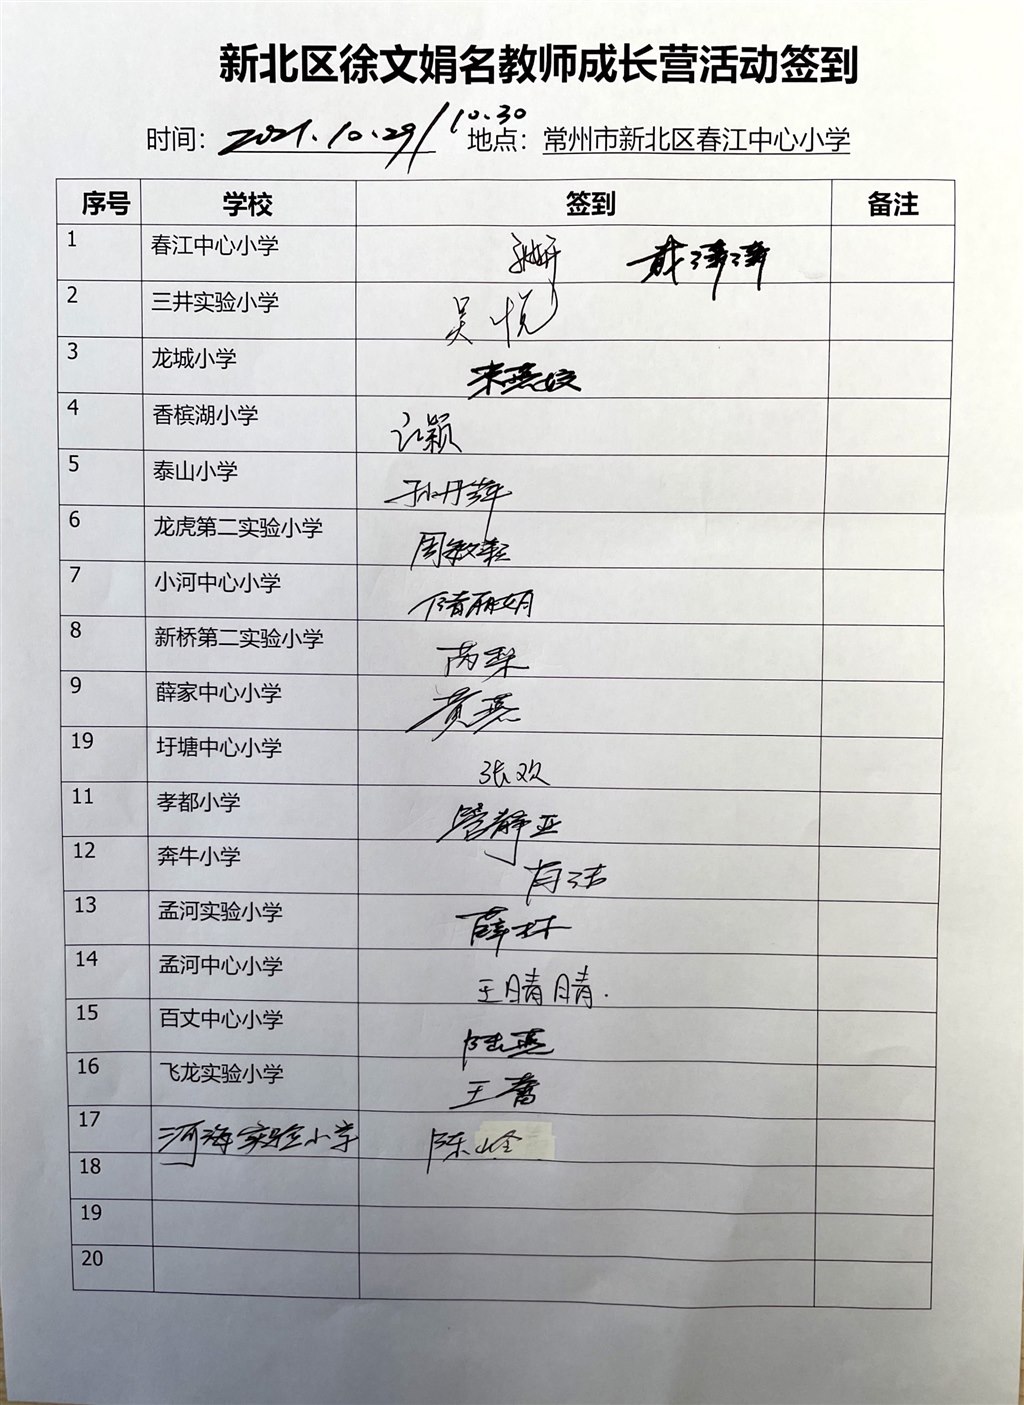 新北区徐文娟名教师成长营活动签到
时间：2021.10.29/10.30 地点：常州市新北区春江中心小学
序号 学校 签到 备注
1 春江中心小学
2 三井实验小学 吴悦
3 龙城小学
4 香槟湖小学 江颖
5 泰山小学 孙丹萍
6 龙虎第二实验小学
7 小河中心小学 倩丽娟
8 新桥第二实验小学 芮梨
9 薛家中心小学 黄燕
19 圩塘中心小学 张欢
11 孝都小学 管静亚
12 奔牛小学 肖洁
13 孟河实验小学 薛林
14 孟河中心小学 王晴晴.
15 百丈中心小学 陆燕
16 飞龙实验小学 王蕾
17 河海实验小学 陈岭
18
19
20